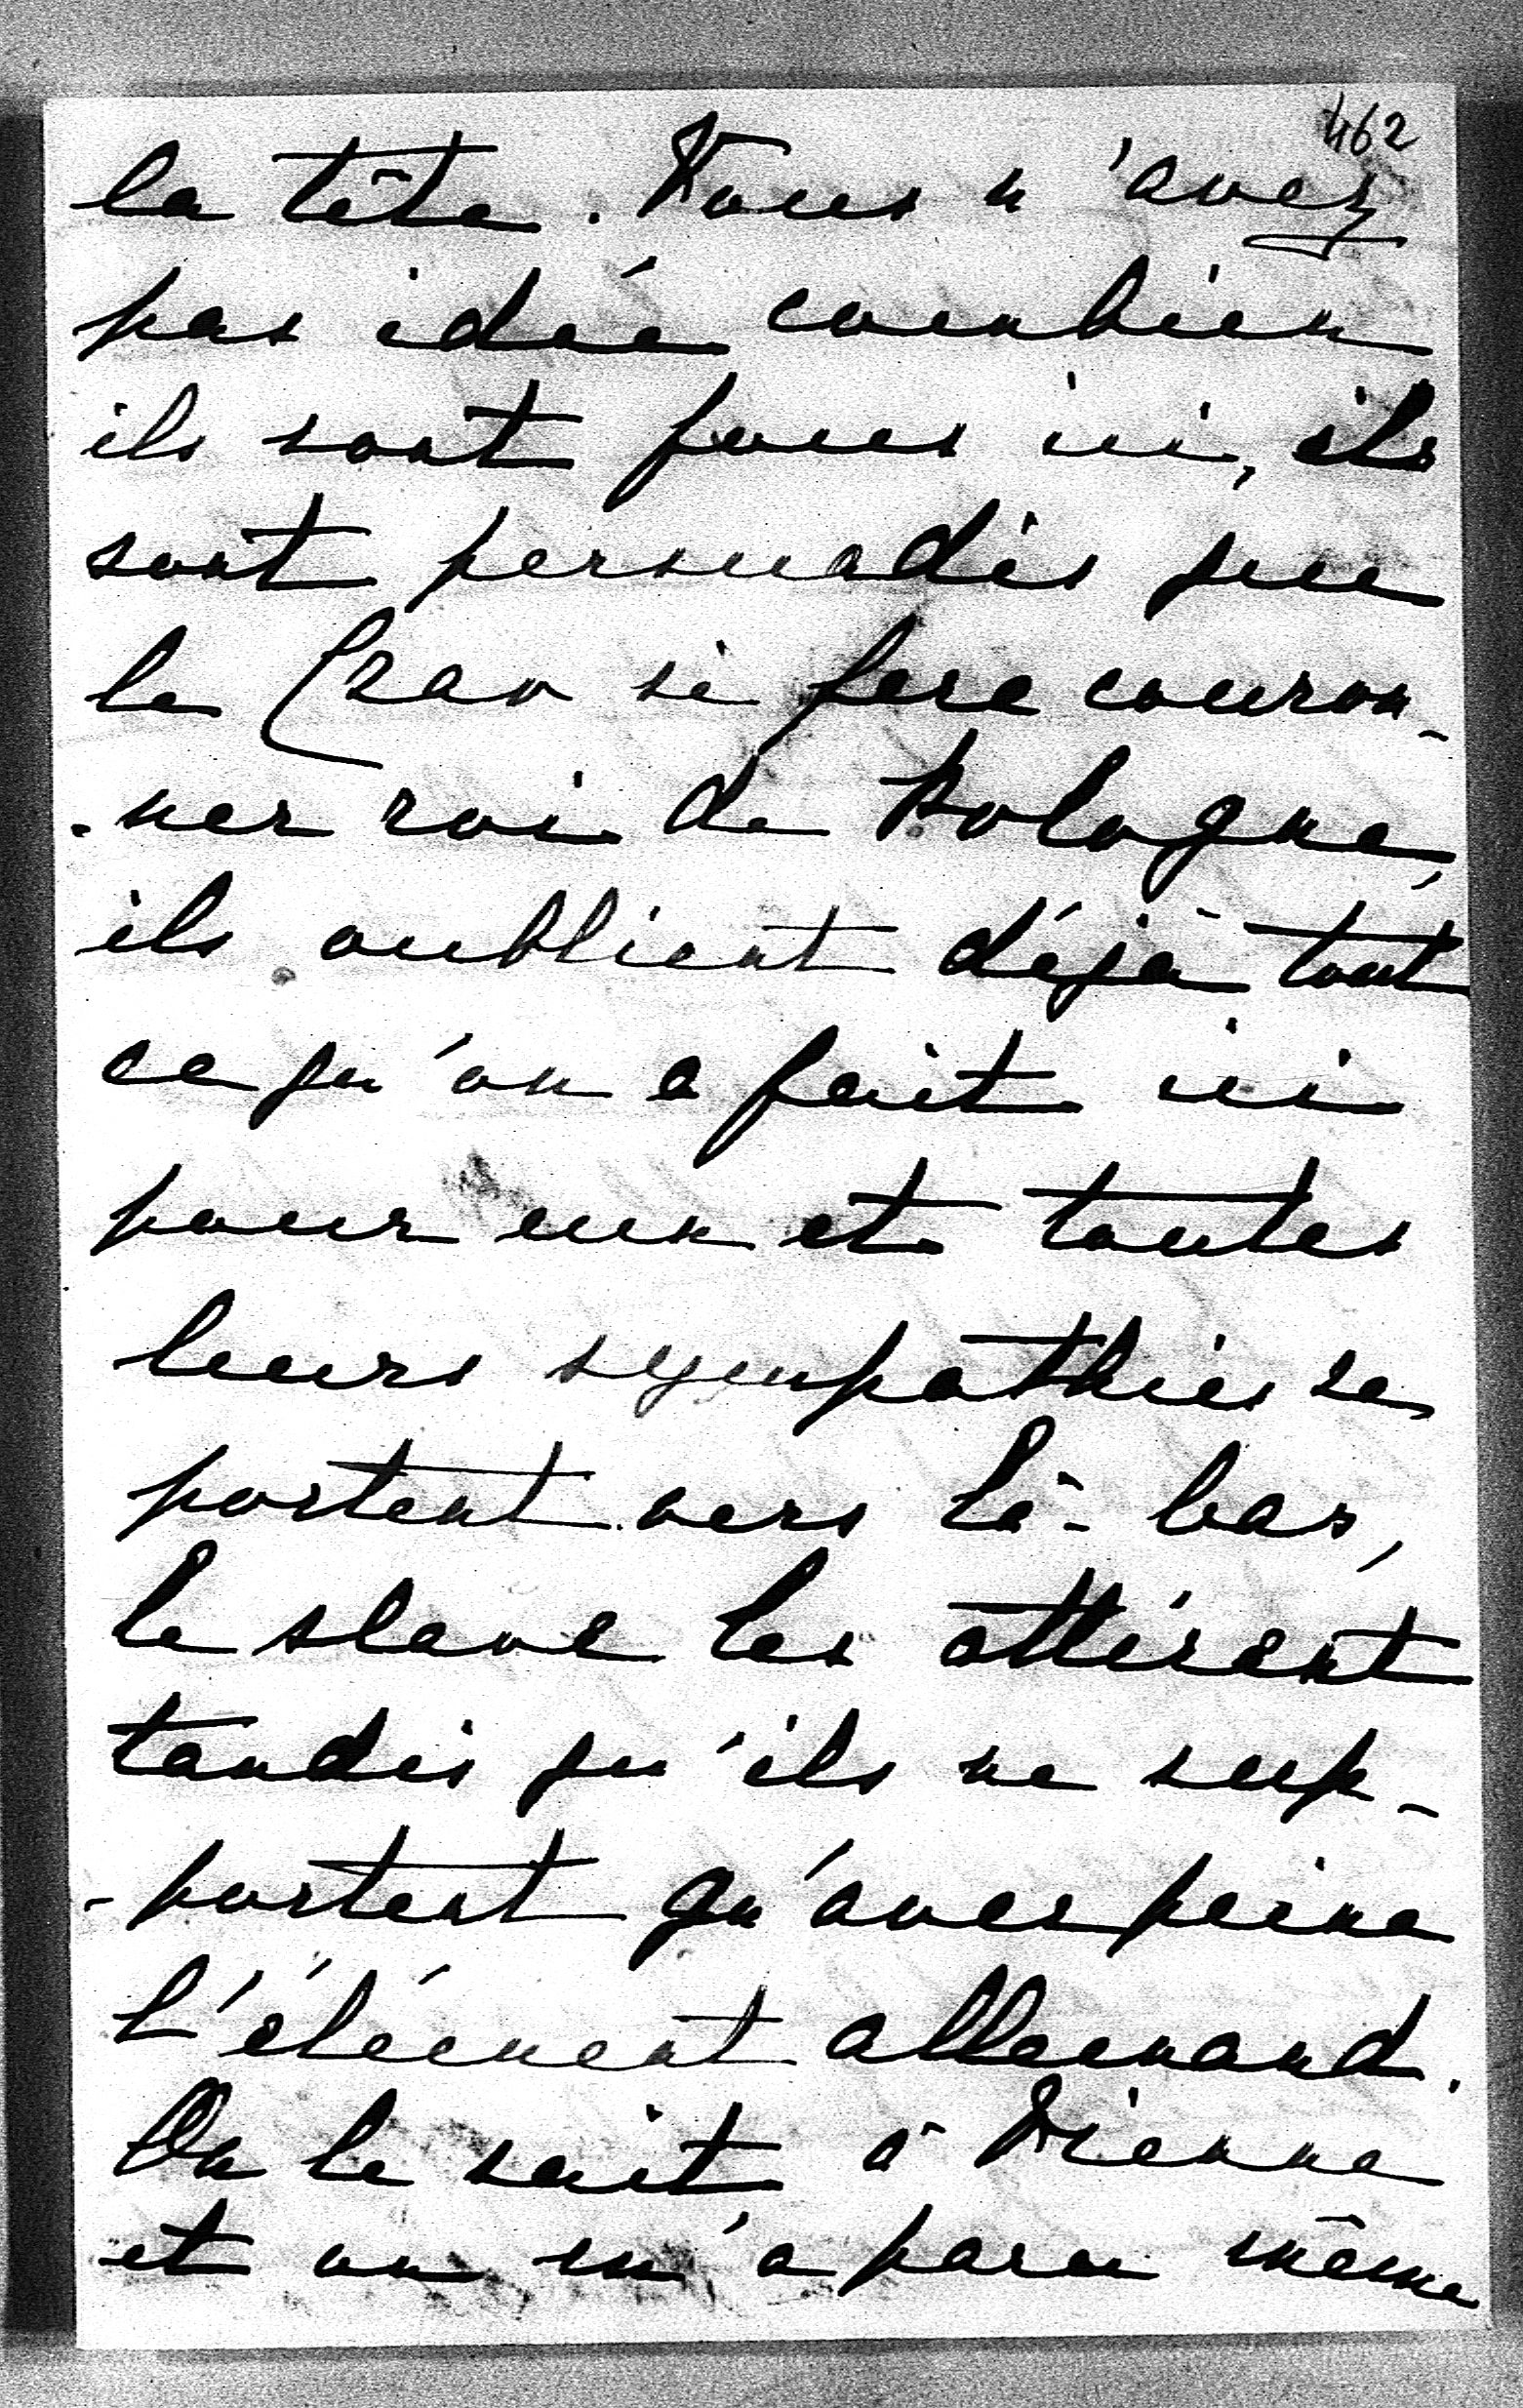 462
la tête. Vous n'avez
pas idée combien
ils sont fous ici, ils
sont persuadés que
le Czar se fera couron-
-ner roi de Pologne,
ils oublient déjà tout
ce qu'on a fait ici
pour eux et toutes
leurs sympathies se
portent vers là-bas,
le slave les attirent
tandis qu'ils ne sup-
-portent qu'avec peine
l'élément allemand.
On le sait à Vienne
et on m'a paru même